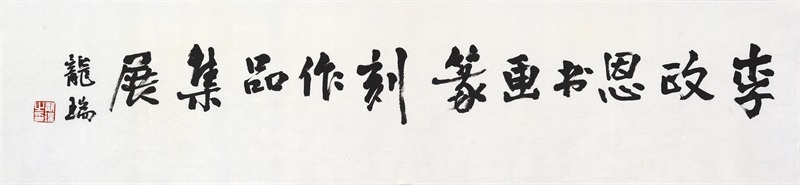 李政恩书画篆刻作品集展
龍瑞